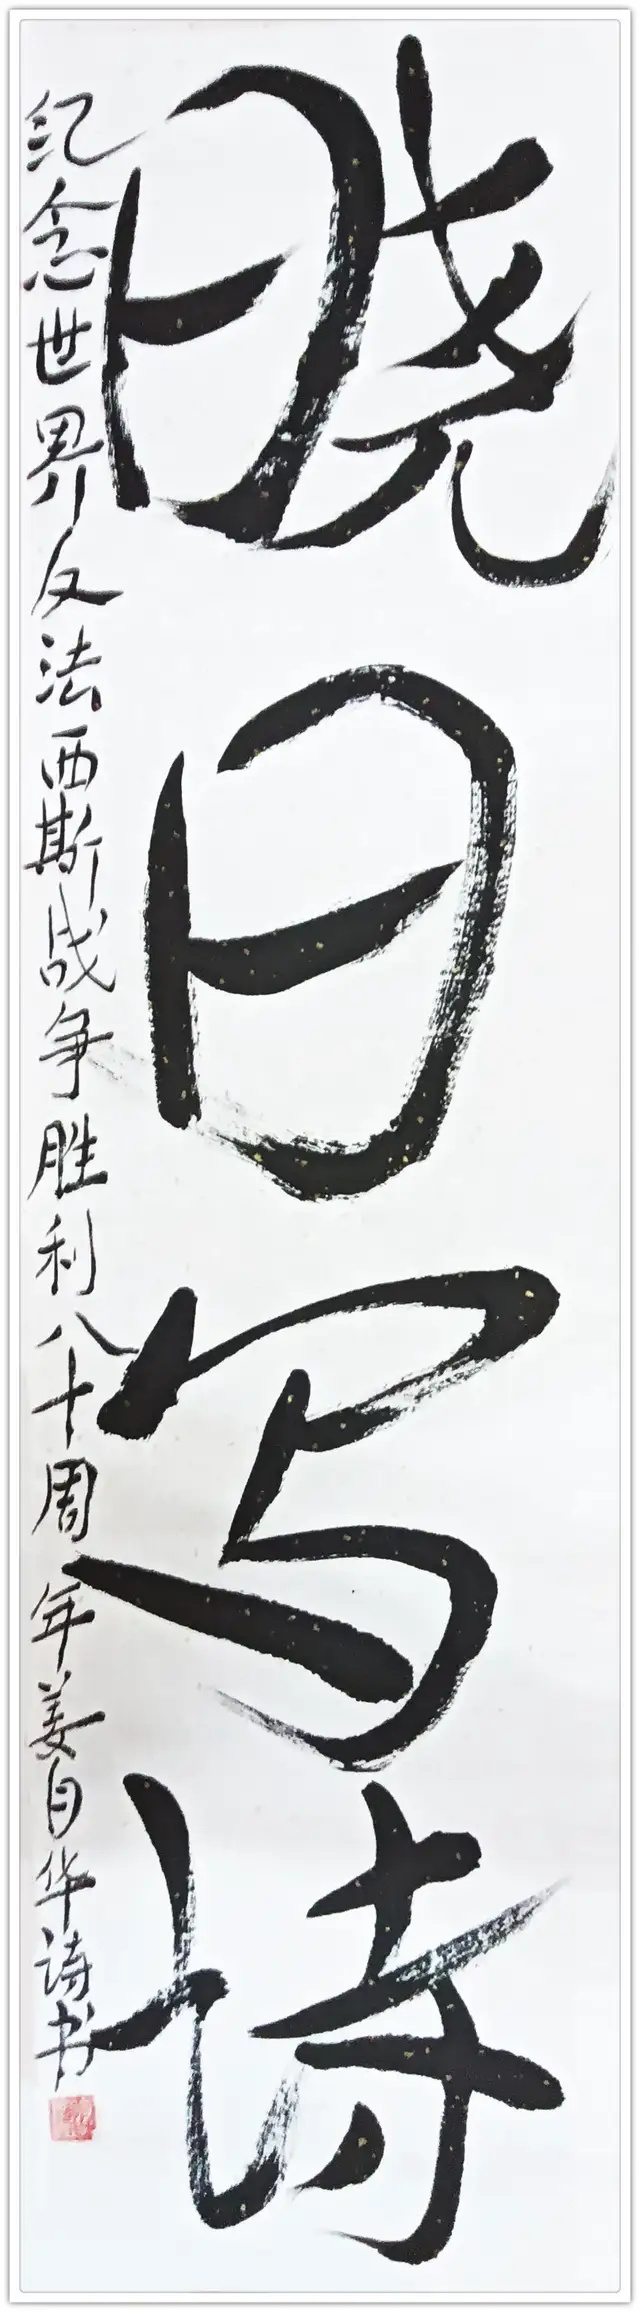 晓日写诗
纪念世界反法西斯战争胜利八十周年姜自华诗书